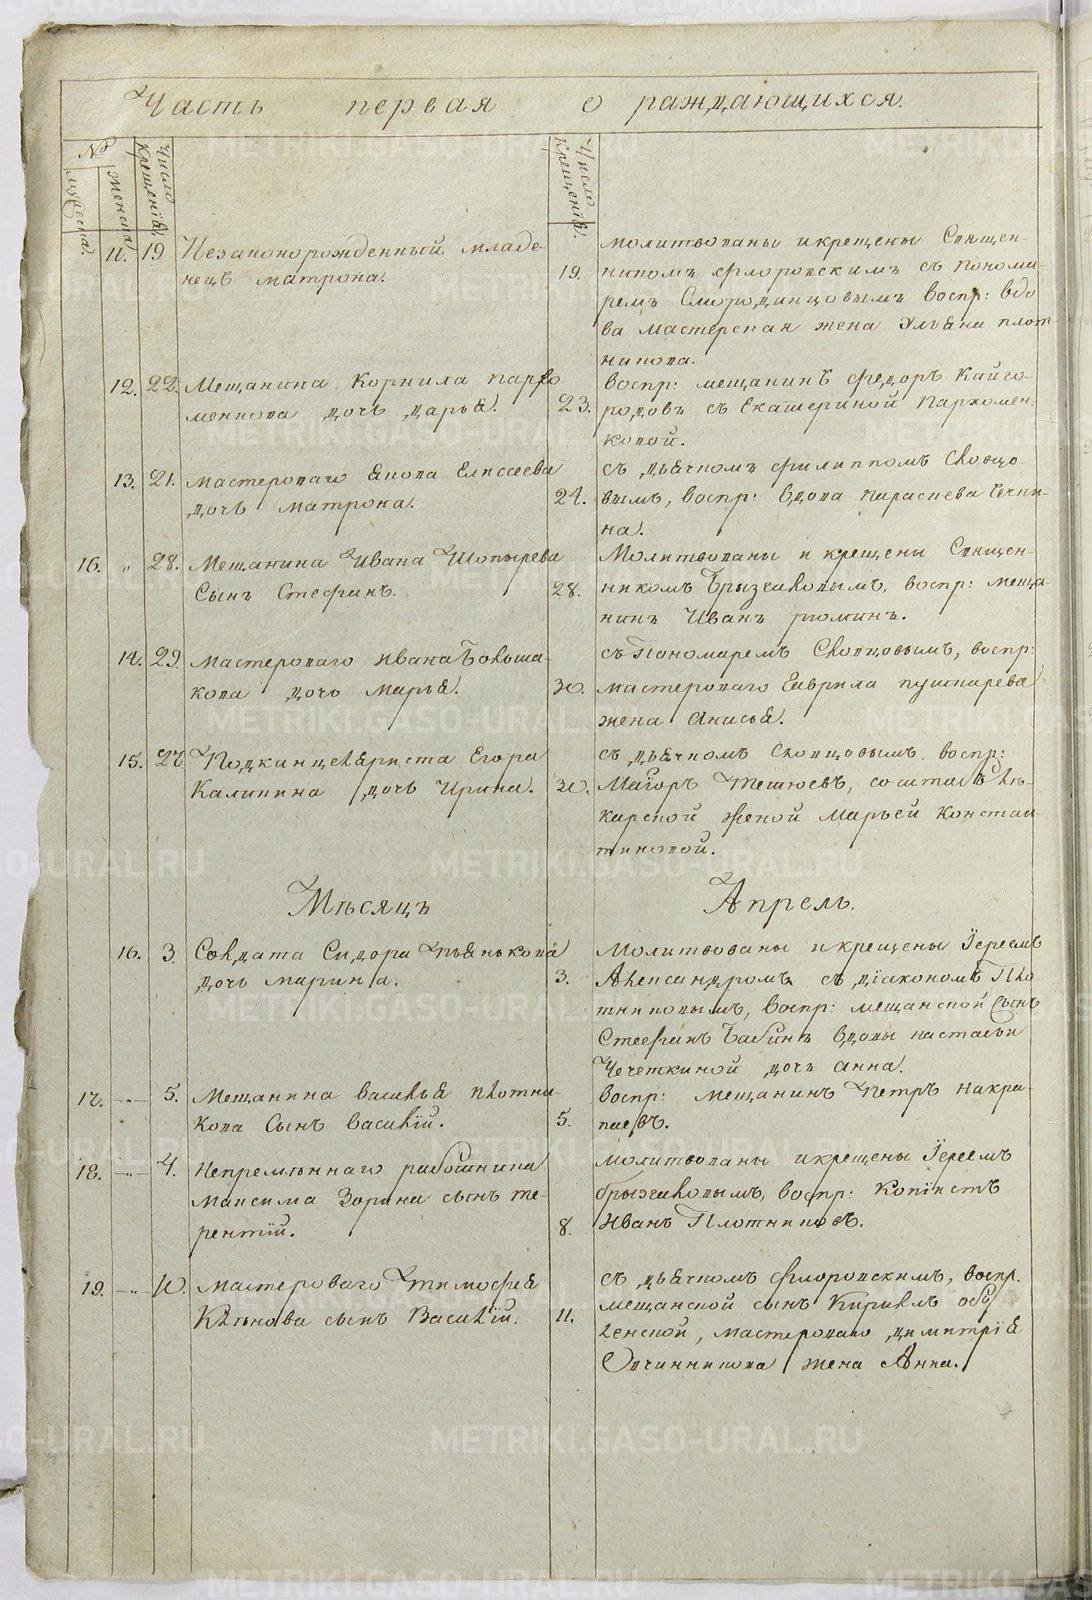 Часть первая о раждающихся.
№
мужеска.
женска
Число крещенія.
Число крещенія.
11. 19 Незаконорожденный младе-
нецъ матрона.
молитвованы и крещены Священ-
19. никомъ флоровскимъ съ понома-
ремъ Смородинцовымъ воспр: вдо
ва мастерская жена Ульяна плот
никова.
12. 22. Мещанина Корнила пархо
менкова дочь дарья.
воспр: мещанинъ федоръ Кайго-
23. родовъ съ Екатериной Пархомен-
ковой.
13. 21. мастероваго Якова Елисеева
дочь матрона.
съ дьячкомъ филиппомъ Сковцо-
24. вымъ, воспр: вдова параскева
на.
16. " 28. Мещанина Ивана Шопырева
Сынъ Стефанъ.
Молитвованы и крещены Священ-
28. никомъ Брызгаловымъ, воспр: меща
нинъ Иванъ рюминъ.
14. 29. мастероваго ивана Больша-
кова дочь марья.
съ Пономаремъ Сковцовымъ, воспр:
30. мастероваго Гаврила пушкарева
жена анисья.
15. 27 Подканцеляриста Егора
Калинина дочь Ирина.
съ дьячкомъ Сковцовымъ воспр:
30. Маіоръ Тетюевъ, со штабъ лѣ-
карской женой Марьей констан-
тиновой.
Мѣсяцъ Апрель.
16. 3. Солдата Сидора Пьянькова
дочь марина.
Молитвованы и крещены Іереемъ
3. Александромъ съ діакономъ Пло-
тниковымъ, воспр: мещанской Сынъ
Стефанъ Бабинъ вдовы настасьи
Чечеткиной дочь анна.
17. -"- 5. Мещанина василья плотни-
кова Сынъ василій.
воспр: мещанинъ Петръ накра-
5. паевъ.
18. -"- 4. Непремѣннаго работника
Максима Зорина сынъ те-
рентій.
молитвованы и крещены Іереемъ
брызгаловымъ, воспр: копіистъ
8. Иванъ Плотниковъ.
19. -"- 10. мастероваго Тимофея
сынъ Василій.
съ дьячкомъ флоровскимъ, воспр.
11. мещанской сынъ Кирилъ
мастероваго димитрія
Овчинникова жена Анна.
METRIKI.GASO-URAL.RU